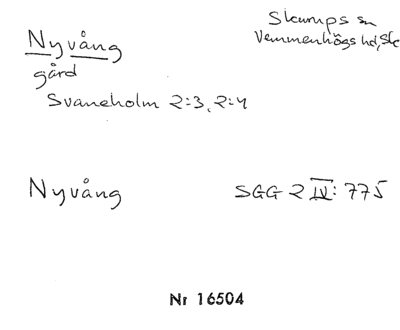 Nyvång
gård
Svaneholm 2:3, 2:4
Skurups sn
Vemmenhögs hd, Sk
Nyvång
SGG 2 IV: 775
Nr 16504